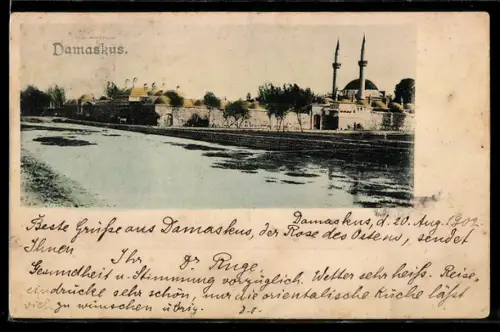 Damaskus.
Damaskus, d. 20 Aug. 1902
Beste Grüße aus Damaskus, der Rose des Ostens, sendet
Ihnen
Ihr Dr Ruge.
Gesundheit u. Stimmung vorzüglich. Wetter sehr heiß. Reise-
eindrücke sehr schön, nur die orientalische Küche läßt
viel zu wünschen übrig.